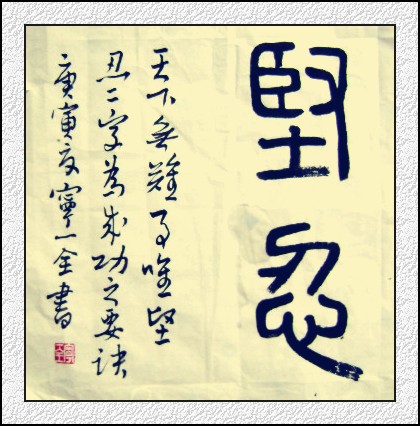 堅忍
天下無難事唯堅
忍二字為成功之要訣
庚寅夏寧一全書